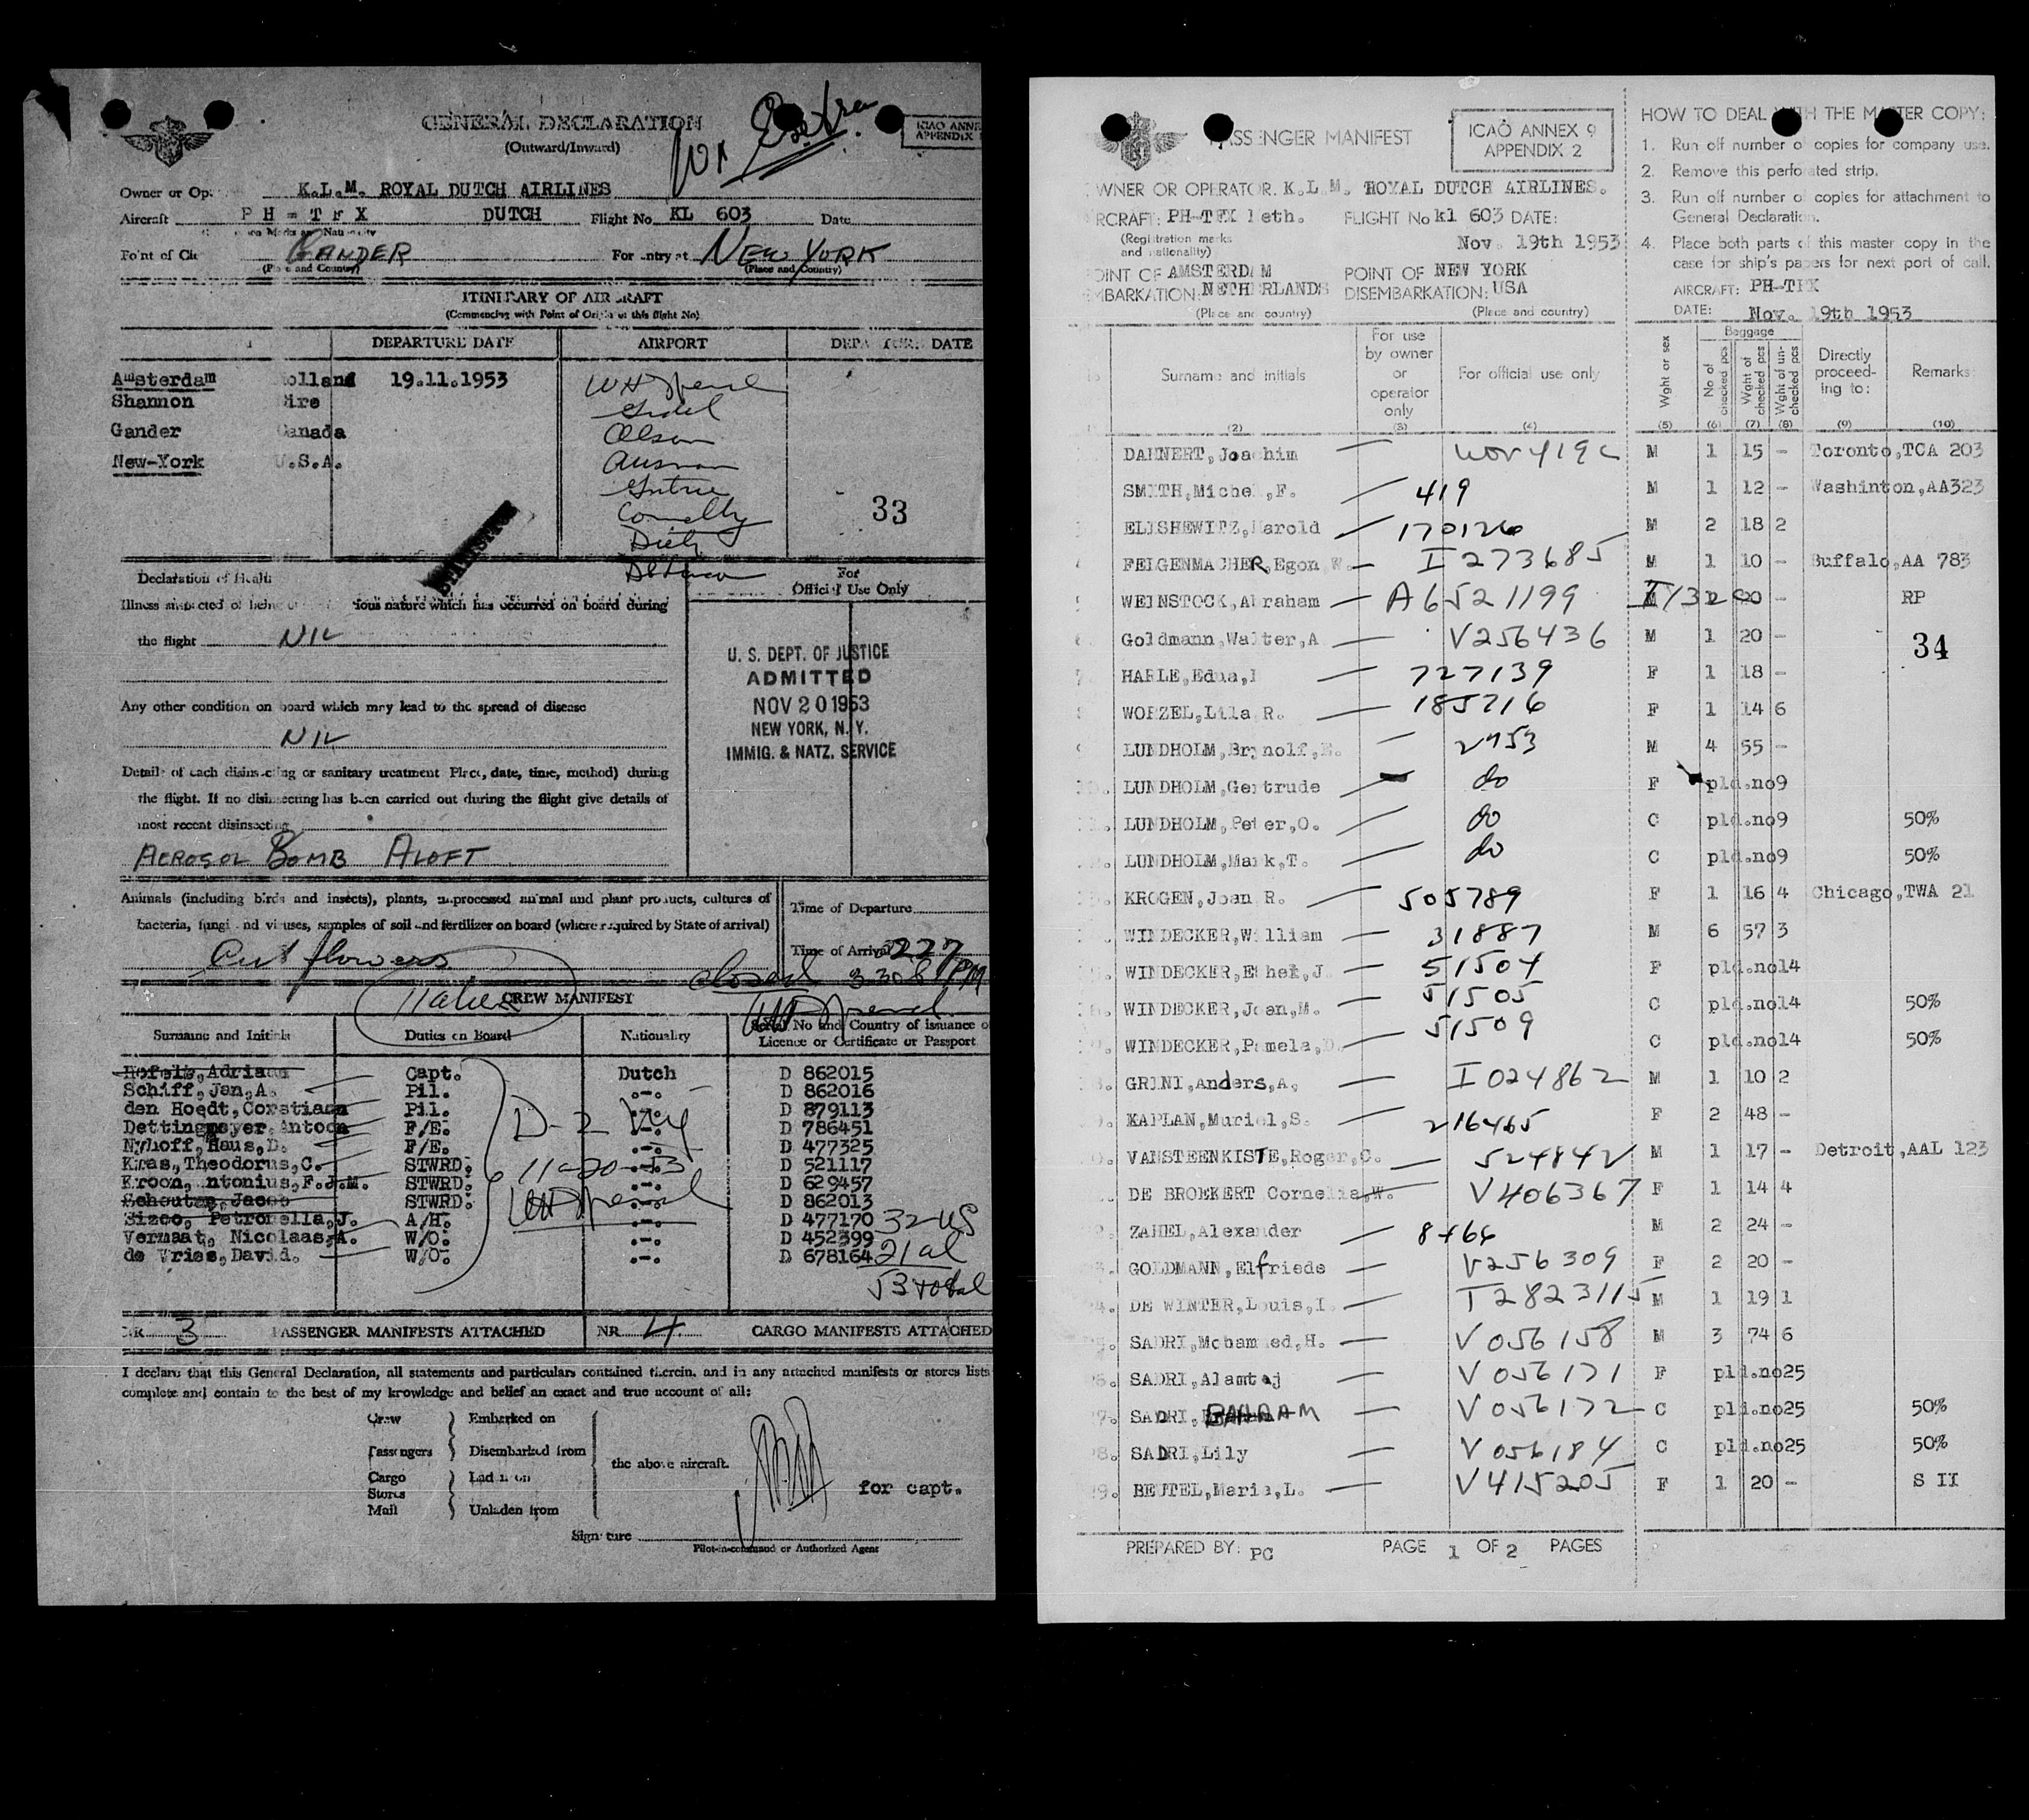 GENERAL DECLARATION
(Outward/Inward)
Extra
ICAO ANNE
APPENDIX
Owner or Op. K.L.M. ROYAL DUTCH AIRLINES
Aircraft PH-TFX DUTCH Flight No. KL 603 Date
GANDER For entry at NEW YORK
(Place and Country) (Place and Country)
ITINERARY OF AIRCRAFT
(Commencing with Point of Origin of this flight No)
DEPARTURE DATE AIRPORT DEPARTURE DATE
Amsterdam Holland 19.11.1953
Shannon Eire
Gander Canada
Olson
New-York U.S.A.
Connelly
33
Declaration of Health
For
Official Use Only
Illness suspected of being of infectious nature which has occurred on board during
the flight NIL
U. S. DEPT. OF JUSTICE
ADMITTED
NOV 20 1953
NEW YORK, N. Y.
IMMIG. & NATZ. SERVICE
Any other condition on board which may lead to the spread of disease
NIL
Details of each disinsecting or sanitary treatment Place, date, time, method) during
the flight. If no disinsecting has been carried out during the flight give details of
most recent disinsecting
AEROSOL BOMB ALOFT
Animals (including birds and insects), plants, unprocessed animal and plant products, cultures of
bacteria, fungi and viruses, samples of soil and fertilizer on board (where required by State of arrival)
Time of Departure
Time of Arrival 227
Cut flowers
closed
CREW MANIFEST
Surname and Initials Duties on Board Nationality Serial No and Country of issuance o
Licence or Certificate or Passport
Hofels, Adriaan Capt. Dutch D 862015
Schiff, Jan, A. Pil. -.- D 862016
den Hoedt, Corstiaan Pil. -.- D 879113
Dettingmeyer, Antoon F/E. -.- D 786451
Nyhoff, Haus, D. F/E. -.- D 477325
Kras, Theodorus, C. STWRD. -.- D 521117
Kroon, ntonius, F.J.M. STWRD. -.- D 629457
Schouten, Jacob STWRD. -.- D 862013
Sizoo, Petronella, J. A/H. -.- D 477170
Vermaat, Nicolaas, A. W/O. -.- D 452399
de Vries, David. W/O. -.- D 678164
11-20-53
32 US
21 al
53 total
NR 3 PASSENGER MANIFESTS ATTACHED NR 4 CARGO MANIFESTS ATTACHED
I declare that this General Declaration, all statements and particulars contained therein, and in any attached manifests or stores lists
complete and contain to the best of my knowledge and belief an exact and true account of all:
Crew Embarked on
Passengers Disembarked from
the above aircraft.
Cargo Laden on
Stores
Mail Unladen from
for capt.
Signature
Pilot-in-command or Authorized Agent
PASSENGER MANIFEST
ICAO ANNEX 9
APPENDIX 2
OWNER OR OPERATOR. K.L.M. ROYAL DUTCH AIRLINES.
AIRCRAFT: PH-TFX Neth. FLIGHT No kl 603 DATE:
(Registration marks
and nationality)
Nov. 19th 1953
POINT OF AMSTERDAM POINT OF NEW YORK
EMBARKATION: NETHERLANDS DISEMBARKATION: USA
(Place and country) (Place and country)
HOW TO DEAL WITH THE MASTER COPY:
1. Run off number of copies for company use.
2. Remove this perforated strip.
3. Run off number of copies for attachment to
General Declaration.
4. Place both parts of this master copy in the
case for ship's papers for next port of call.
AIRCRAFT: PH-TFX
DATE: Nov. 19th 1953
Surname and initials
For use
by owner
or
operator
only
For official use only
Wght or sex
Baggage
No of checked pcs
Wght of checked pcs
Wght of un-checked pcs
Directly
proceed-
ing to:
Remarks
(2) (3) (4) (5) (6) (7) (8) (9) (10)
DAHNERT, Joachim M 1 15 - Toronto, TCA 203
SMITH, Michel, F. 419 M 1 12 - Washinton, AA323
ELISHEWITZ, Harold 170126 M 2 18 2
FEIGENMACHER, Egon W. I 273685 M 1 10 - Buffalo, AA 783
WEINSTOCK, Abraham A6521199 RP
Goldmann, Walter, A V256436 M 1 20 -
34
HARLE, Edna, 727139 F 1 18 -
WORZEL, Lila R. 185716 F 1 14 6
LUNDHOLM, Brynolf, E. 2953 M 4 55 -
LUNDHOLM, Gertrude do F pld.no9
LUNDHOLM, Peter, O. do C pld.no9 50%
LUNDHOLM, Mark, T. do C pld.no9 50%
KROGEN, Joan R. 505789 F 1 16 4 Chicago, TWA 21
WINDECKER, William 31887 M 6 57 3
WINDECKER, Ethel, J. 51504 F pld.no14
WINDECKER, Joan, M. 51505 C pld.no14 50%
WINDECKER, Pamela, D. 51509 C pld.no14 50%
GRINI, Anders, A. I 024862 M 1 10 2
KAPLAN, Muriel, S. 216465 F 2 48 -
VANSTEENKISTE, Roger, C. 524842 M 1 17 - Detroit, AAL 123
DE BROEKERT Cornelia, W. V406367 F 1 14 4
ZAHEL, Alexander M 2 24 -
GOLDMANN, Elfriede V256309 F 2 20 -
DE WINTER, Louis, I. M 1 19 1
SADRI, Mohammed, H. V 056158 M 3 74 6
SADRI, Alamtaj V 056171 F pld.no25
SADRI, BAHRAM V 056172 C pld.no25 50%
SADRI, Lily V 056184 C pld.no25 50%
BEUTEL, Maria, L. V415205 F 1 20 - S II
PREPARED BY: PC PAGE 1 OF 2 PAGES